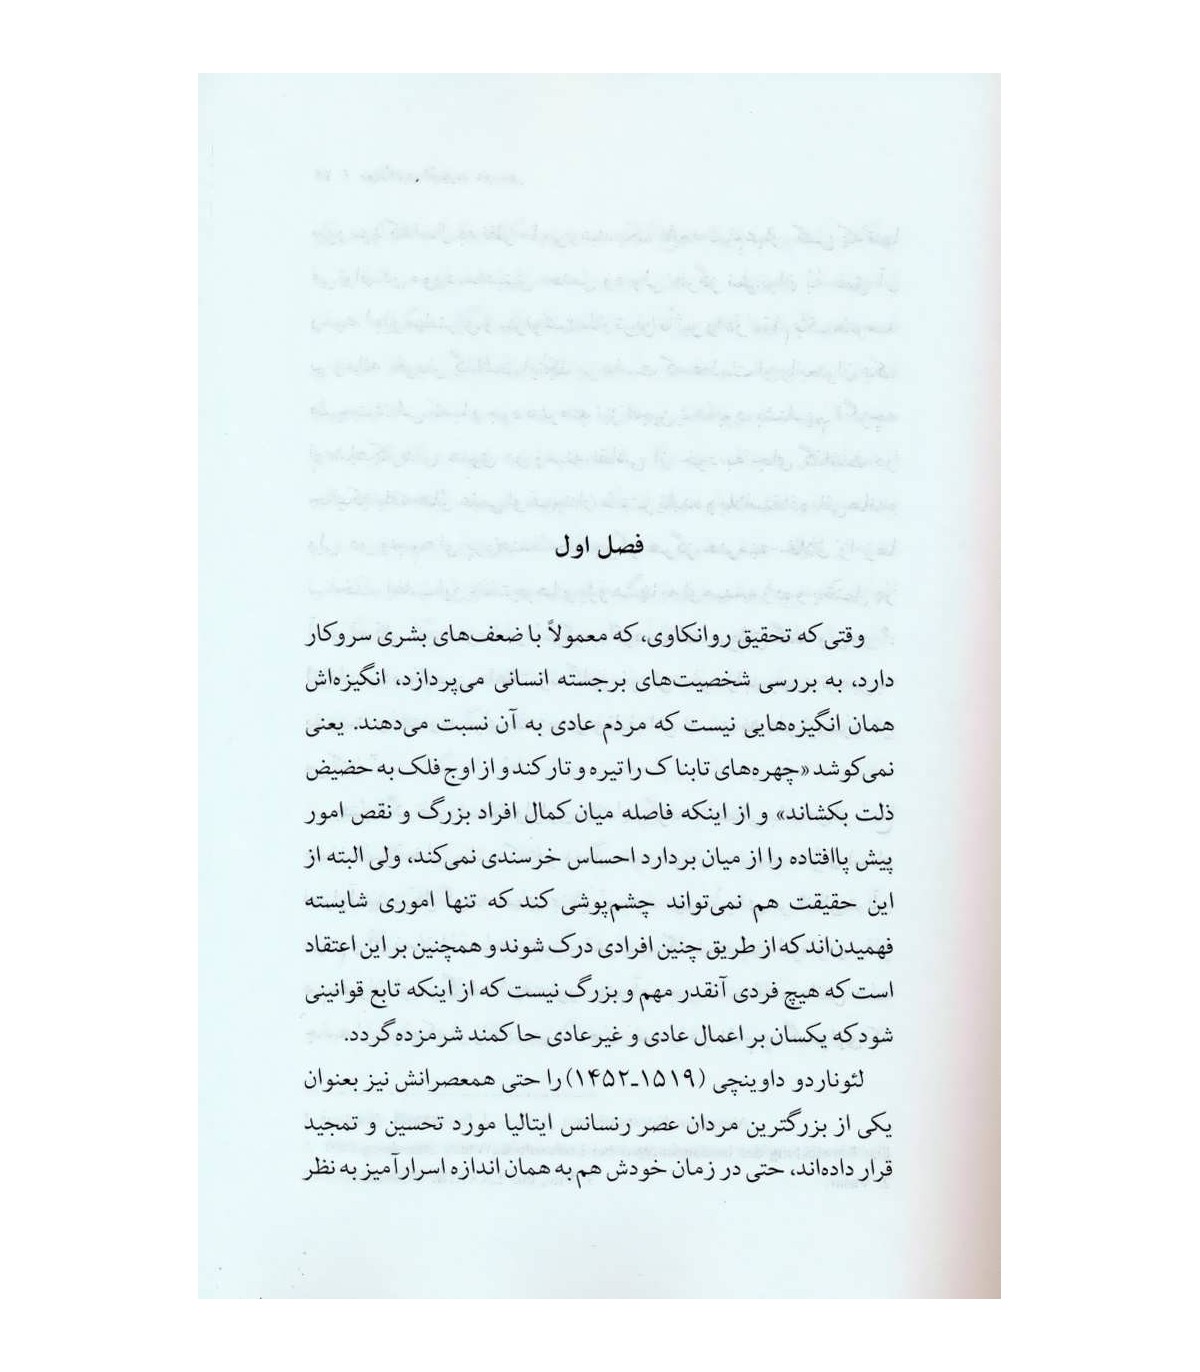 فصل اول
وقتی که تحقیق روانکاوی، که معمولاً با ضعف‌های بشری سروکار
دارد، به بررسی شخصیت‌های برجسته انسانی می‌پردازد، انگیزه‌اش
همان انگیزه‌هایی نیست که مردم عادی به آن نسبت می‌دهند. یعنی
نمی‌کوشد «چهره‌های تابناک را تیره و تار کند و از اوج فلک به حضیض
ذلت بکشاند» و از اینکه فاصله میان کمال افراد بزرگ و نقص امور
پیش پاافتاده را از میان بردارد احساس خرسندی نمی‌کند، ولی البته از
این حقیقت هم نمی‌تواند چشم‌پوشی کند که تنها اموری شایسته
فهمیدن‌اند که از طریق چنین افرادی درک شوند و همچنین بر این اعتقاد
است که هیچ فردی آنقدر مهم و بزرگ نیست که از اینکه تابع قوانینی
شود که یکسان بر اعمال عادی و غیرعادی حاکمند شرمزده گردد.
لئوناردو داوینچی (۱۵۱۹ـ۱۴۵۲) را حتی همعصرانش نیز بعنوان
یکی از بزرگترین مردان عصر رنسانس ایتالیا مورد تحسین و تمجید
قرار داده‌اند، حتی در زمان خودش هم به همان اندازه اسرارآمیز به نظر